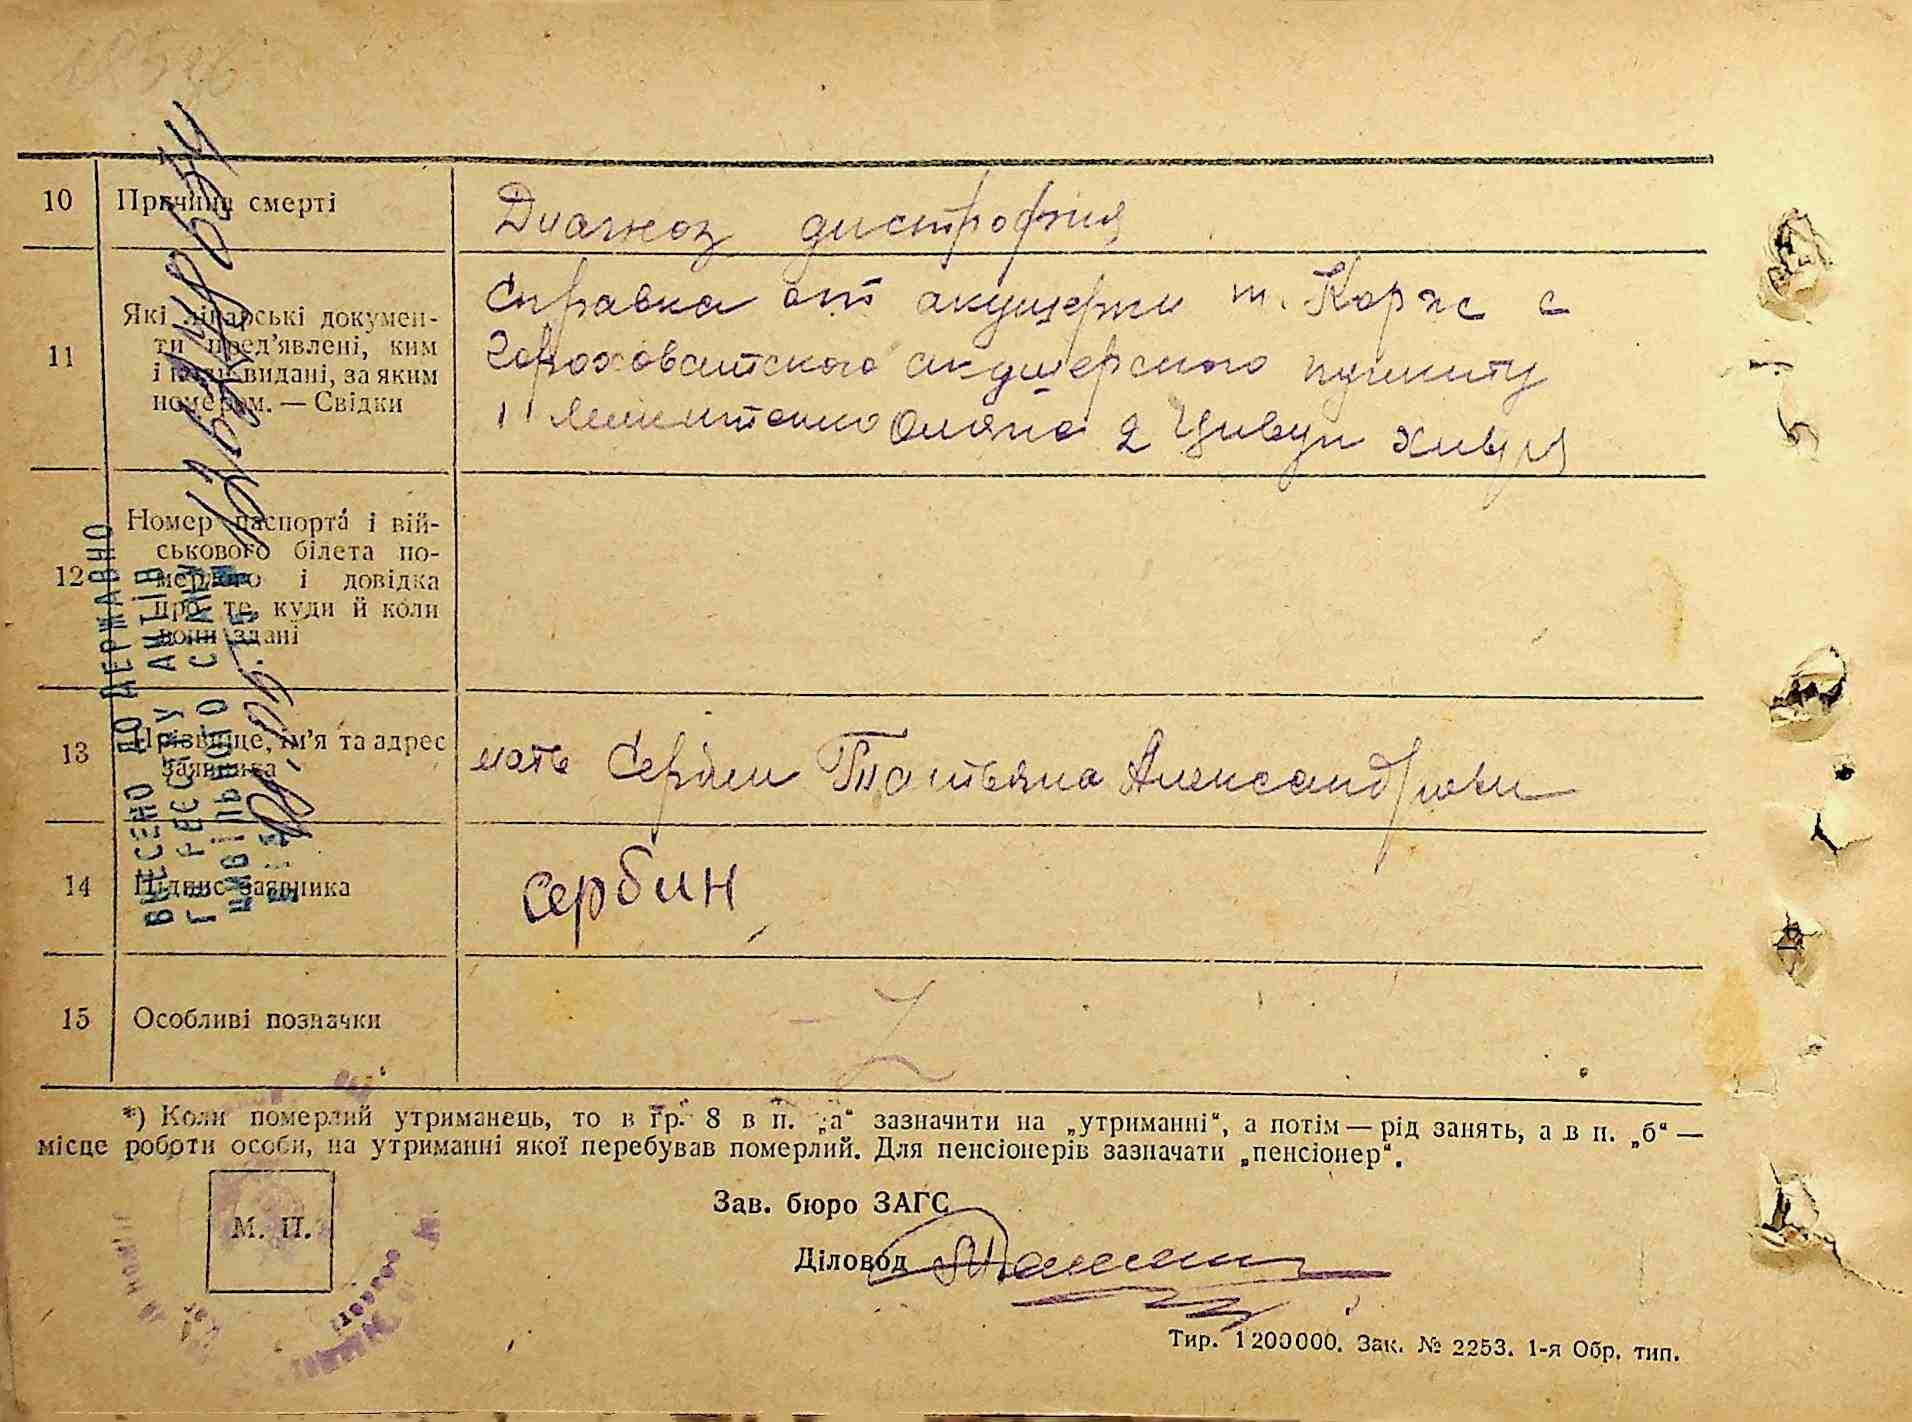 10 Причина смерті
Диагноз дистрофия
11 Які лікарські докумен-
ти пред'явлені, ким
і коли видані, за яким
номером. — Свідки
Справка от акушерки т. Корж с
Гороховатского акушерского пункту
Оляна 2 Цивун
12 Номер паспорта і вій-
ськового білета по-
мерлого і довідка
про те, куди й коли
вони здані
13 Прізвище, ім'я та адрес
заявника
мать Сербин Татьяна Александровн
14 Підпис заявника
Сербин
15 Особливі позначки
ВНЕСЕНО ДО ДЕРЖАВНО
ГО РЕЄСТРУ АКТІВ
ЦИВІЛЬНОГО СТАНУ
*) Коли померлий утриманець, то в гр. 8 в п. „а“ зазначити на „утриманні“, а потім — рід занять, а в п. „б“ —
місце роботи особи, на утриманні якої перебував померлий. Для пенсіонерів зазначати „пенсіонер“.
М. П.
Зав. бюро ЗАГС
Діловод
Тир. 1200000. Зак. № 2253. 1-я Обр. тип.